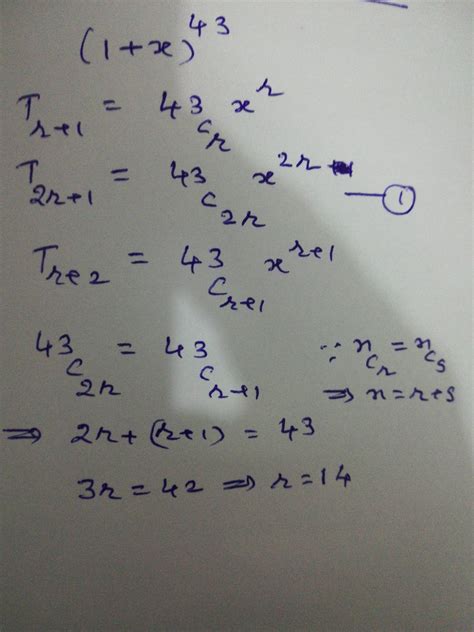 (1+x)^43
T_{r+1} = 43_{C_r} x^r
T_{2r+1} = 43_{C_{2r}} x^{2r} —①
T_{r+2} = 43_{C_{r+1}} x^{r+1}
43_{C_{2r}} = 43_{C_{r+1}} ∵ n_{C_r} = n_{C_s}
⇒ n = r+s
⇒ 2r+(r+1) = 43
3r = 42 ⇒ r = 14